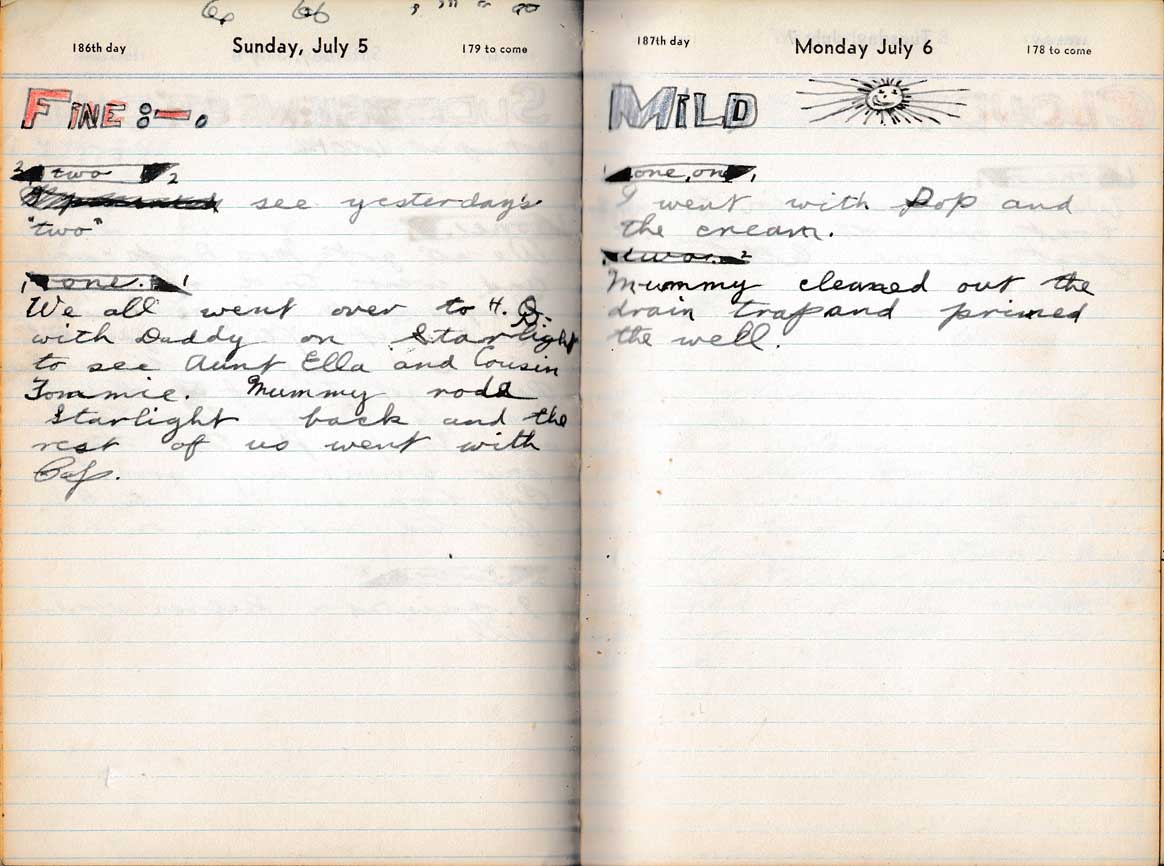 186th day Sunday, July 5 179 to come
FINE :—.
2 two 2
see yesterday's
"two"
1 one. 1
We all went over to H. Q.
with Daddy on Starlight
to see Aunt Ella and Cousin
Tommie. Mummy rode
Starlight back and the
rest of us went with
187th day Monday July 6 178 to come
MILD
1 one, one, 1
I went with Pop and
the cream.
two. 2
Mummy cleaned out the
drain trap and primed
the well.